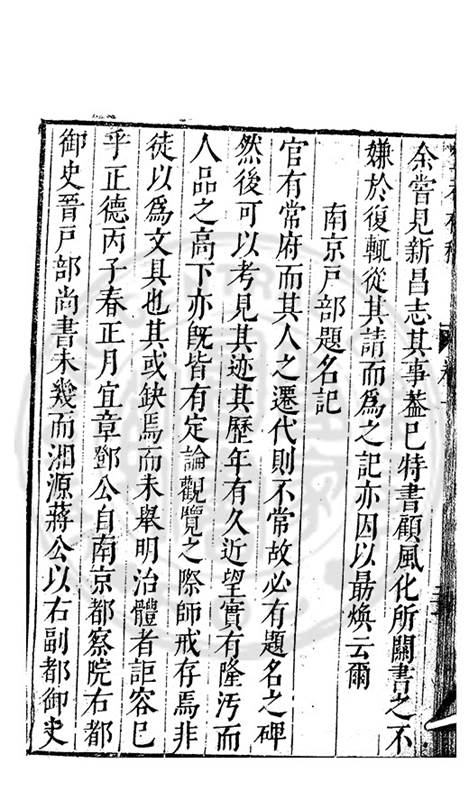 余嘗見新昌志其事葢已特書顧風化所關書之不
嫌於復輒從其請而爲之記亦因以朂煥云爾
南京戸部題名記
官有常府而其人之遷代則不常故必有題名之碑
然後可以考見其迹其歷年有久近望實有隆汚而
人品之高下亦旣皆有定論觀覽之際師戒存焉非
徒以爲文具也其或缺焉而未舉明治體者詎容已
乎正德丙子春正月宜章鄧公自南京都察院右都
御史晉戸部尚書未幾而湘源蔣公以右副都御史